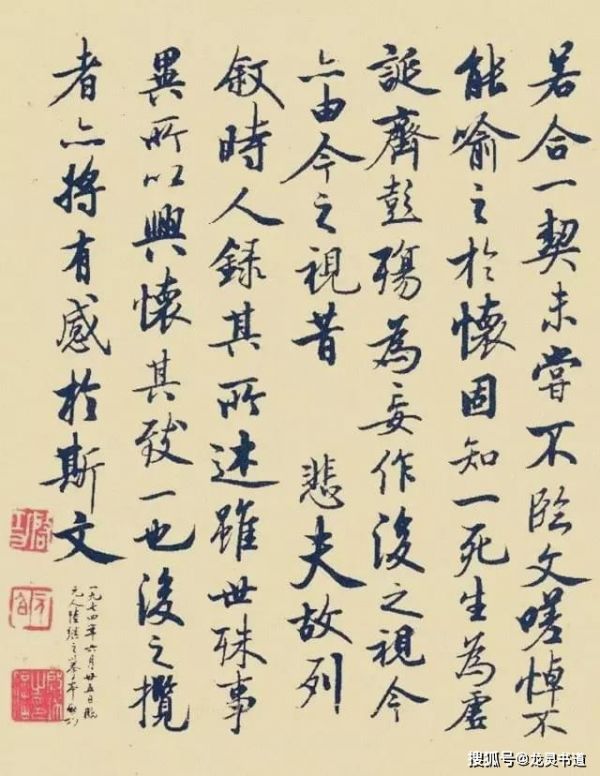 若合一契未嘗不臨文嗟悼不
能喻之於懷固知一死生為虛
誕齊彭殤為妄作後之視今
亦由今之視昔 悲夫故列
敘時人錄其所述雖世殊事
異所以興懷其致一也後之攬
者亦將有感於斯文
一九七四年六月廿五日臨
元人陸繼之摹本
搜狐号@龙灵书道